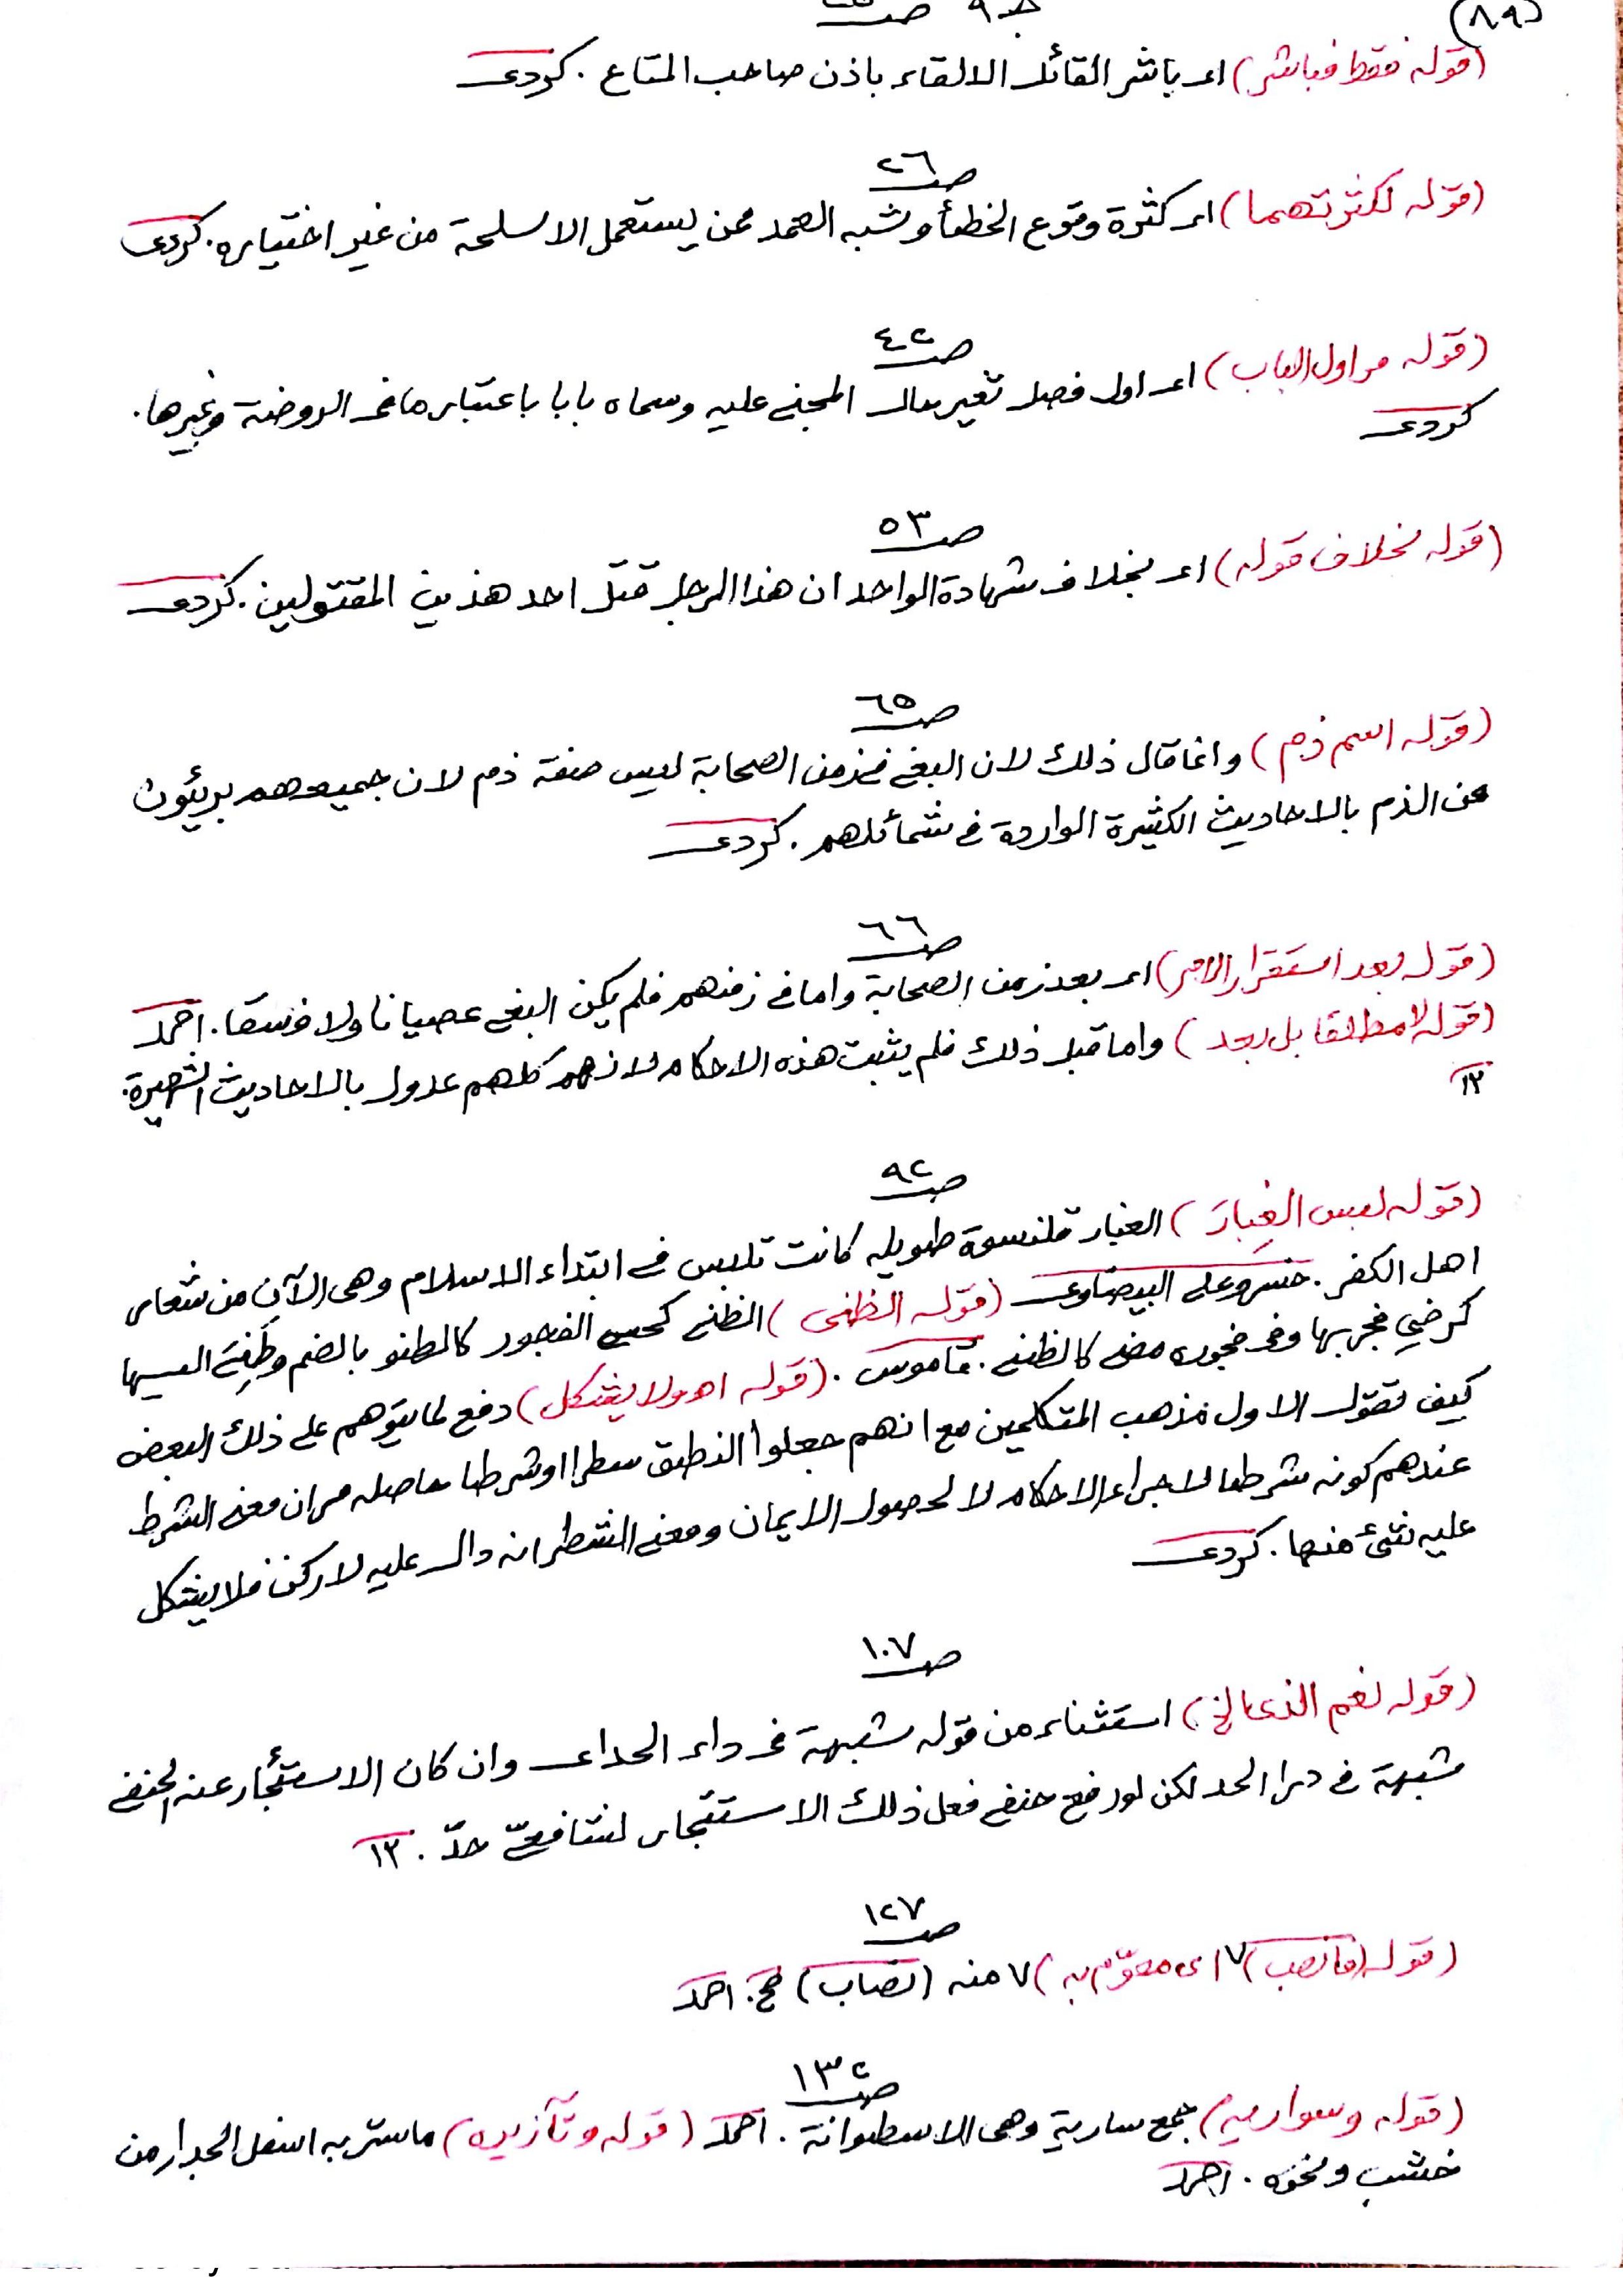 (٨٩)
ج ٩ ص
(قوله فقط فباشر) اى باشر القائل الالقاء باذن صاحب المتاع . كردى
ص ٢٦
(قوله لكثرتهما) اى كثرة وقوع الخطأ وشبه العمد ممن يستعمل الاسلحة من غير اختياره . كردى
ص ٤٢
(قوله مر اول الباب) اى اول فصل تغير حال المجنى عليه وسماه بابا باعتبار ما فى الروضة وغيرها .
كردى
ص ٥٣
(قوله بخلاف قوله) اى بخلاف شهادة الواحد ان هذا الرجل قتل احد هذين المقتولين . كردى
ص ٦٥
(قوله اسم ذم) وانما قال ذلك لان البغى فى زمن الصحابة ليس صفة ذم لان جميعهم بريئون
عن الذم بالاحاديث الكثيرة الواردة فى شمائلهم . كردى
ص ٦٦
(قوله بعد استقرار الامر) اى بعد زمن الصحابة واما فى زمنهم فلم يكن البغى عصيانا ولا فسقا . احمد
(قوله لا مطلقا بل بعد) واما قبل ذلك فلم يثبت هذه الاحكام لانهم كلهم عدول بالاحاديث الشهيرة .
١٢
ص ٩٢
(قوله لبس الغيار) الغيار قلنسوة طويله كانت تلبس فى ابتداء الاسلام وهى الآن من شعار
اهل الكفر . خسرو على البيضاوى (قوله الظنى) الظنى كحى الفجور كالطنو بالضم وطَنِئ اليها
كرضي فجر بها وفى فجوره مضى كالظنى . قاموس . (قوله اهـ ولا يشكل) دفع لما يتوهم على ذلك البعض
كيف تقول الاول مذهب المتكلمين مع انهم جعلوا النطق سطرا او شرطا حاصله مر ان معنى الشرط
عندهم كونه شرطا لاجراء الاحكام لا لحصول الايمان ومعنى الشطر انه دال عليه لا ركن فلا يشكل
عليه شئ منها . كردى
ص ١٠٧
(قوله نعم الذى الخ) استثناء من قوله شبهة فى درء الحد اى وان كان الاستئجار عند الحنفى
شبهة فى درا الحد لكن لو رفع حنفى فعل ذلك الاستئجار لشافعىّ حدّ . ١٢
ص ١٢٧
(قوله (فانصب) ٧ اى مقوّم به) ٧ منه (نصاب) صح . احمد
ص ١٣٢
(قوله وسواريه) جمع سارية وهى الاسطوانة . احمد (قوله وتآزيره) ما ستر به اسفل الجدار من
خشب ونحوه . احمد